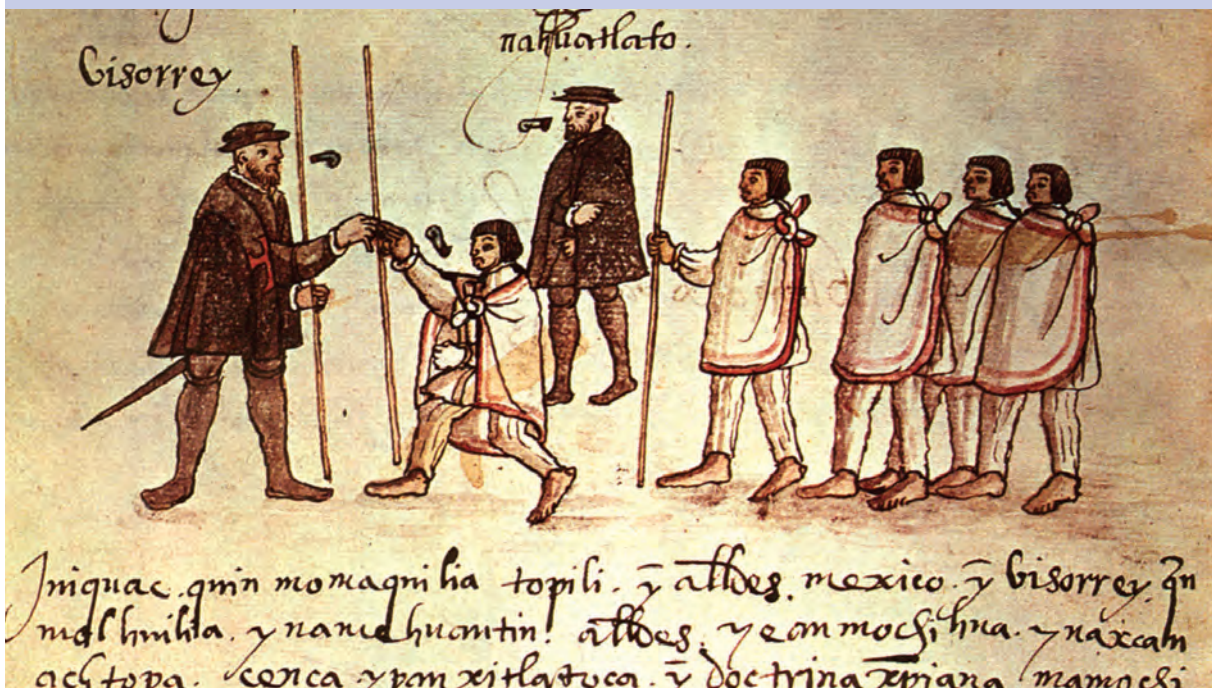 nahuatlato.
Visorrey.
Iniquac. quin momaquilia topili. ȳ all̄des. mexico. ȳ Visorrey. q̄n
mol huilia. ynamehuantin. all̄des. yeanmochihua. ynaxcan
achtopa. cenca ypan xitlatoca. ȳ doctrina xp̄iana mamochi